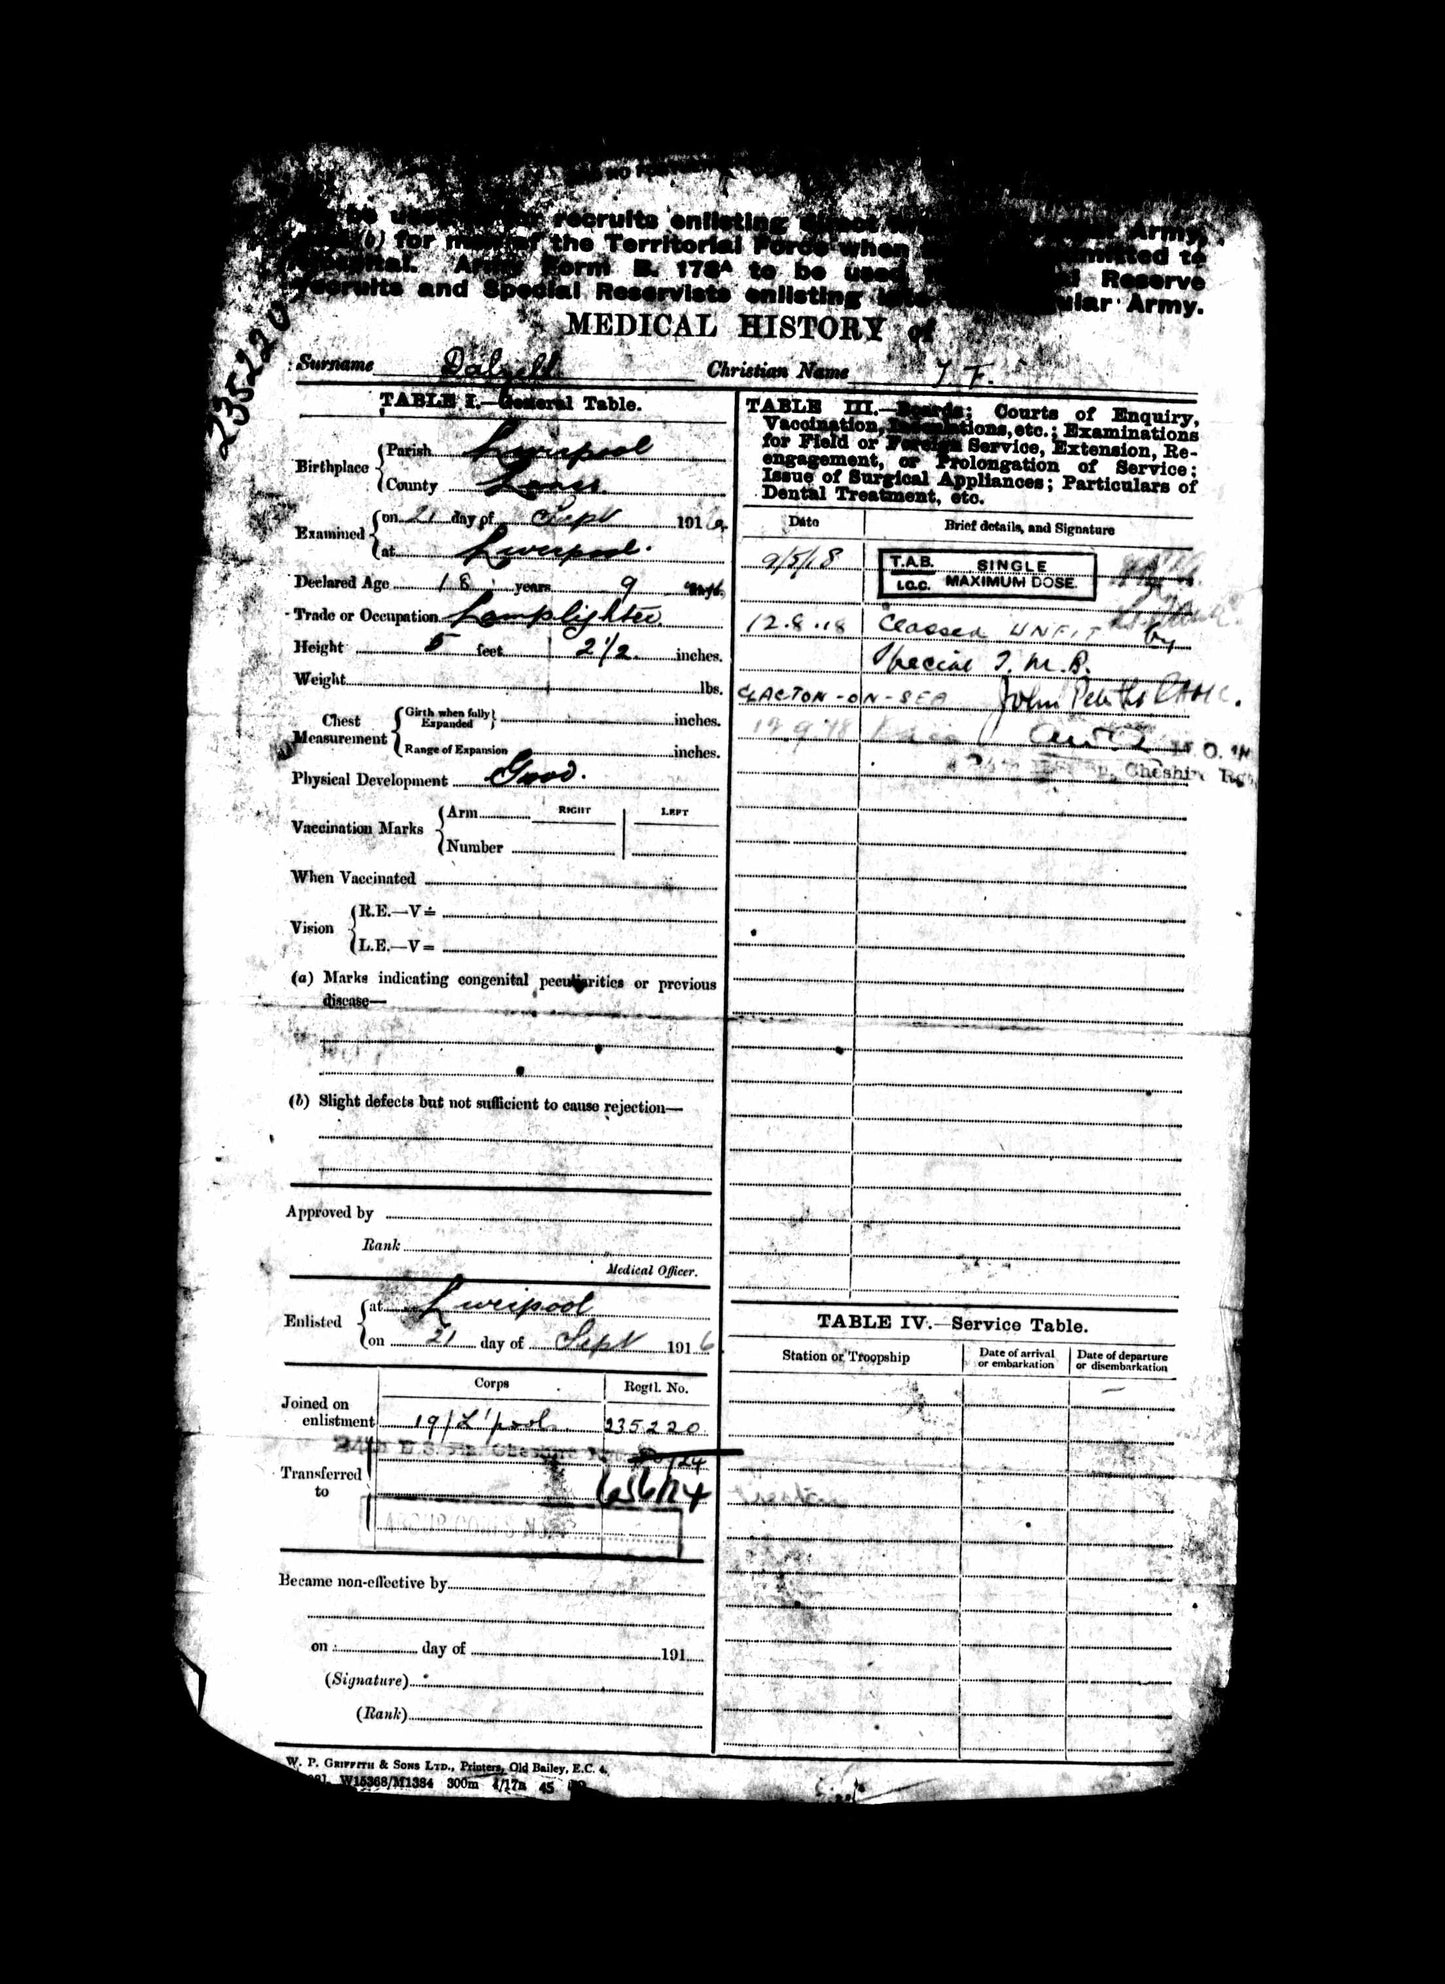 recruits enlisting Army,
for of the Territorial Force when to
Army Form B. 178A to be used Reserve
recruits and Special Reservists enlisting Army.
235220
MEDICAL HISTORY of
Surname Dalzell Christian Name T F.
TABLE I.—General Table.
Birthplace
Parish Liverpool
County Lancs
Examined
on 21 day of Sept 1916
at Liverpool.
Declared Age 18 years 9
Trade or Occupation Lamplighter
Height 5 feet 2 1/2 inches.
Weight lbs.
Chest Measurement
Girth when fully Expanded inches.
Range of Expansion inches.
Physical Development Good.
Vaccination Marks
Arm RIGHT LEFT
Number
When Vaccinated
Vision
R.E.—V=
L.E.—V=
(a) Marks indicating congenital peculiarities or previous
disease—
(b) Slight defects but not sufficient to cause rejection—
Approved by
Rank
Medical Officer.
Enlisted
at Liverpool
on 21 day of Sept 1916
Corps Regtl. No.
Joined on
enlistment 19/L'pools. 235220
24th
Transferred
to
65674
Became non-effective by
on day of 191
(Signature)
(Rank)
TABLE III.—Boards; Courts of Enquiry,
Vaccination, Inoculations, etc.; Examinations
for Field or Foreign Service, Extension, Re-
engagement, or Prolongation of Service;
Issue of Surgical Appliances; Particulars of
Dental Treatment, etc.
Date Brief details, and Signature
9/5/18 T.A.B. SINGLE
I.C.C. MAXIMUM DOSE.
12.8.18 Classed UNFIT by
Special T.M.B.
CLACTON-ON-SEA John
Cheshire Rgt
TABLE IV.—Service Table.
Station or Troopship
Date of arrival
or embarkation
Date of departure
or disembarkation
W. P. GRIFFITH & SONS LTD., Printers, Old Bailey, E.C. 4.
W15368/M1384 300m 4/17 45